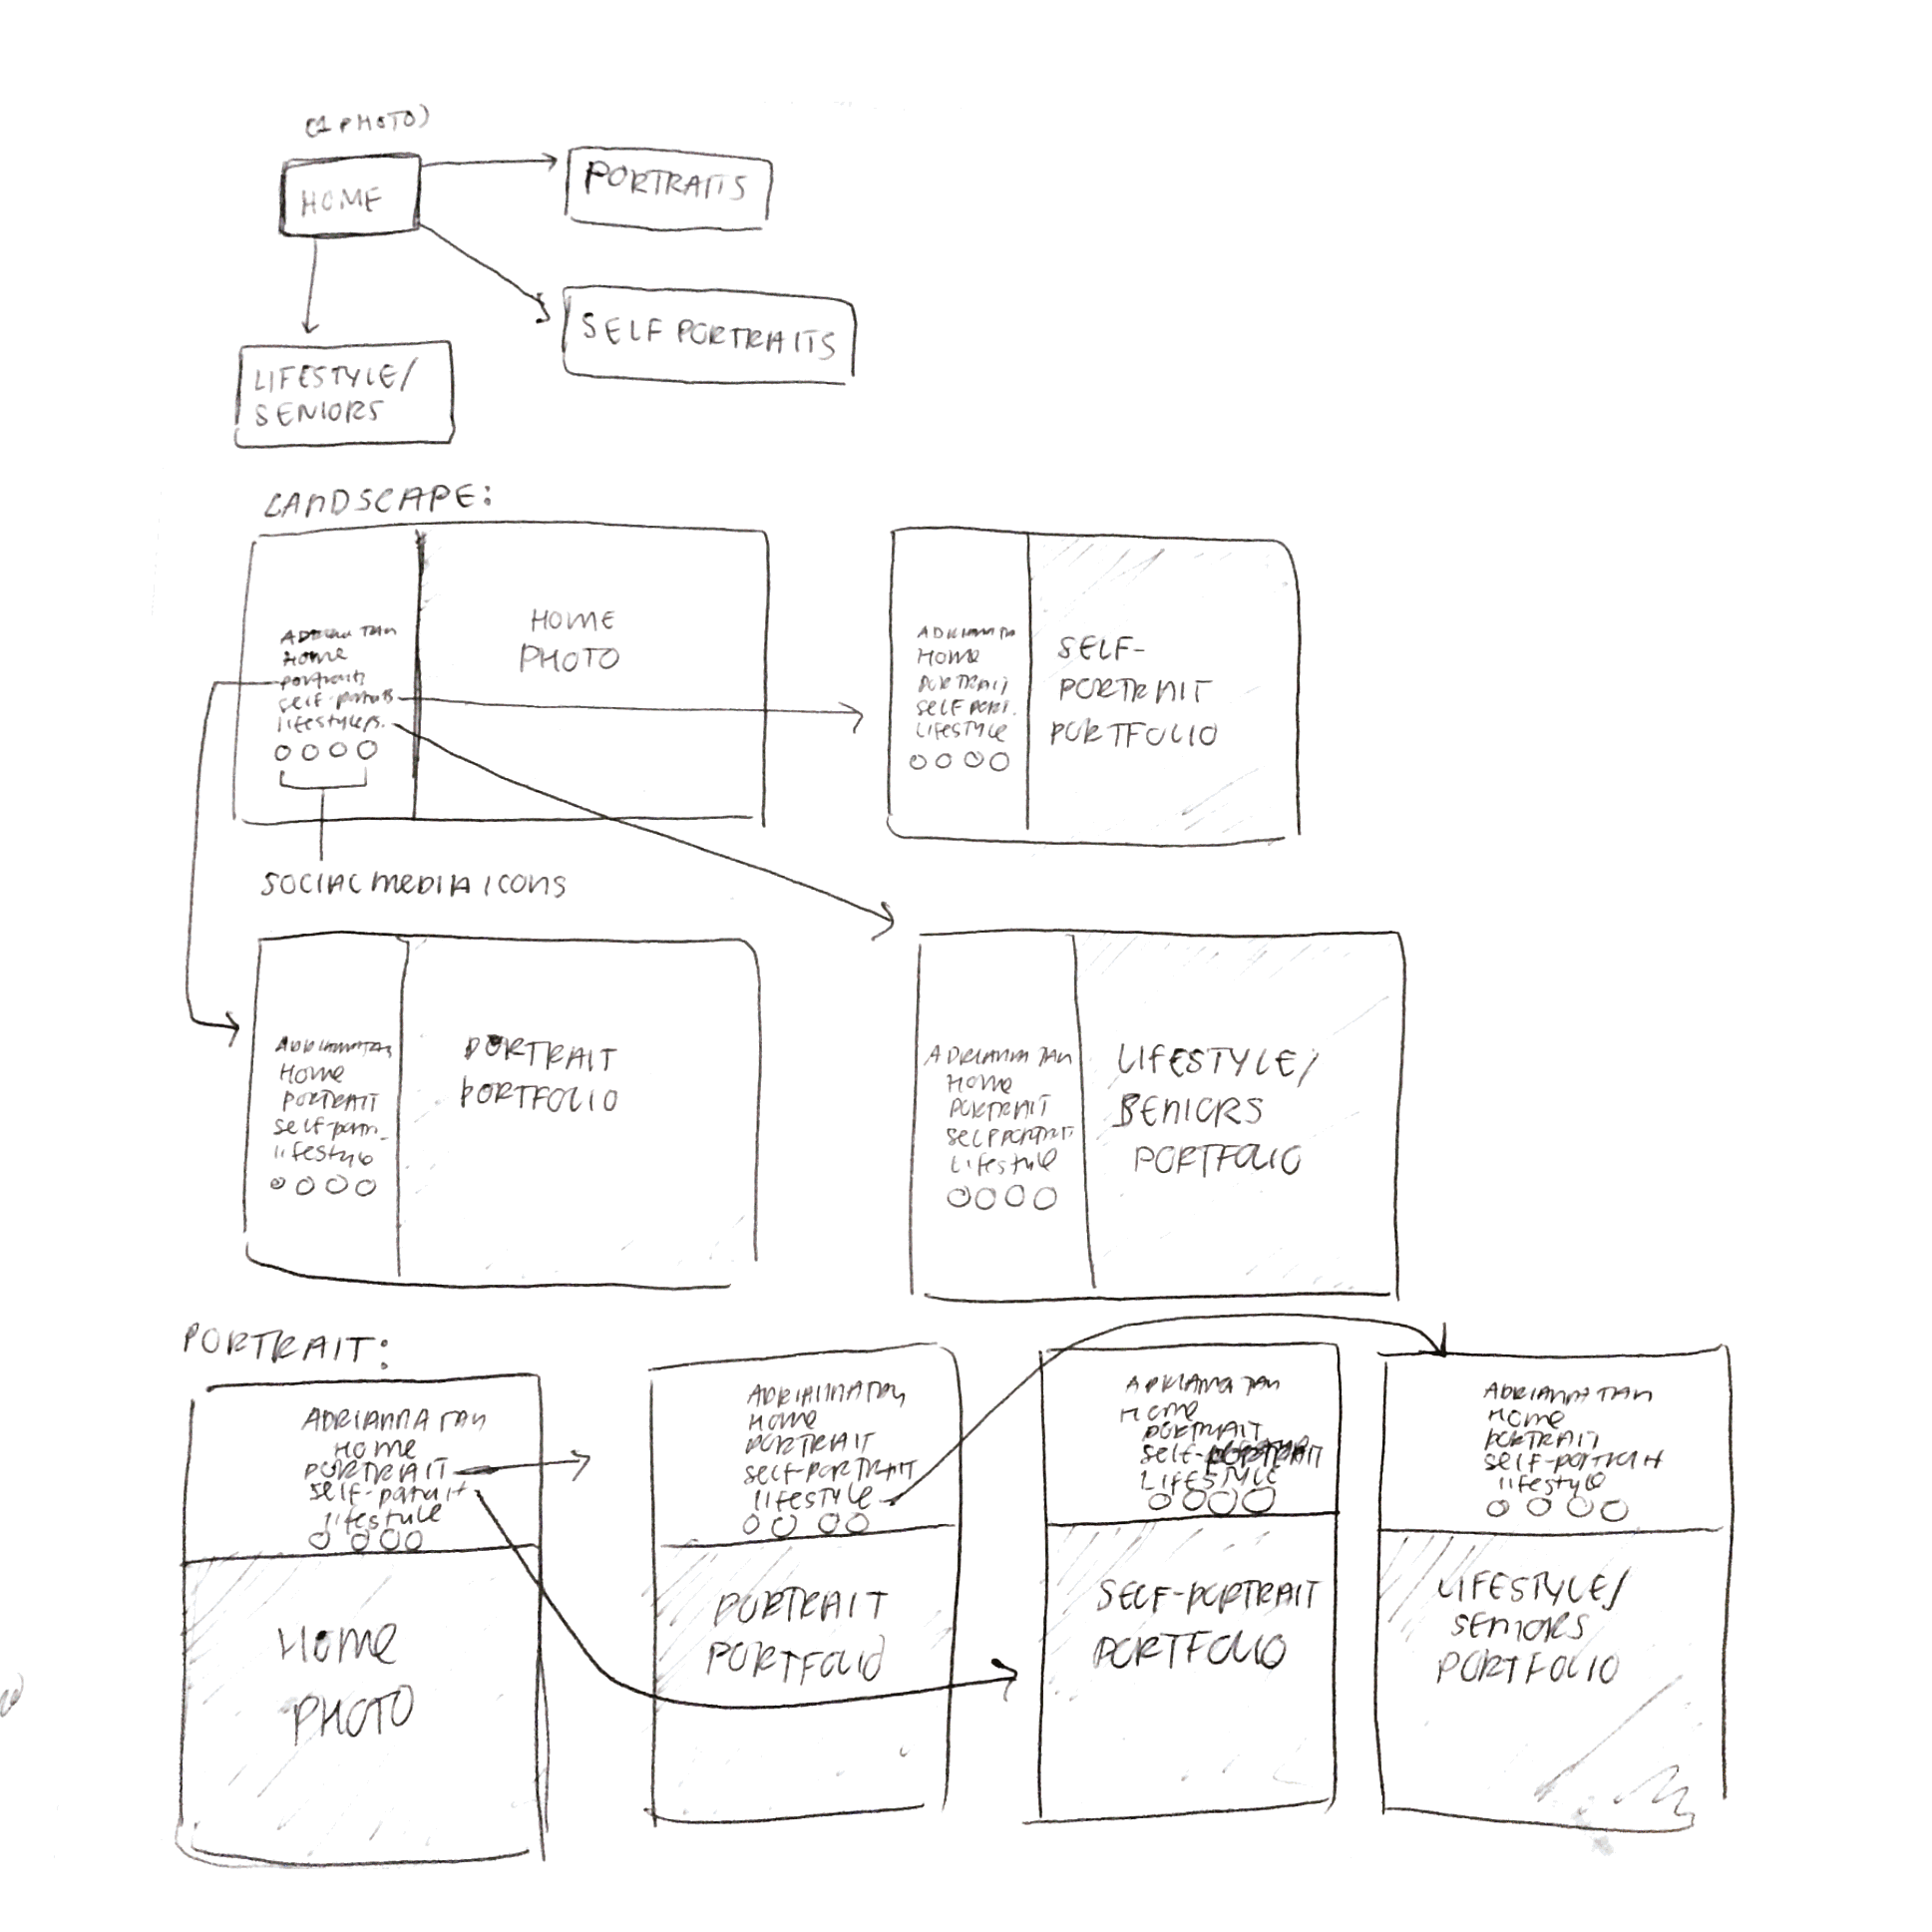 (1 PHOTO)
HOME
PORTRAITS
SELF PORTRAITS
LIFESTYLE/
SENIORS
LANDSCAPE:
TAN
Home
portraits
self-
HOME
PHOTO
SOCIAL MEDIA ICONS
HOME
PORTRAIT
SELF PORT.
LIFESTYLE
SELF-
PORTRAIT
PORTFOLIO
HOME
PORTRAIT
self-
lifestyle
PORTRAIT
PORTFOLIO
ADRIANNA TAN
HOME
PORTRAIT
SELF PORTRAIT
Lifestyle
LIFESTYLE/
SENIORS
PORTFOLIO
PORTRAIT:
ADRIANNA TAN
HOME
PORTRAIT
self-
lifestyle
HOME
PHOTO
ADRIANNA TAN
HOME
PORTRAIT
SELF-PORTRAIT
lifestyle
PORTRAIT
PORTFOLIO
ADRIANNA TAN
HOME
PORTRAIT
SELF-PORTRAIT
LIFESTYLE
SELF-PORTRAIT
PORTFOLIO
ADRIANNA TAN
HOME
PORTRAIT
self-portrait
lifestyle
LIFESTYLE/
SENIORS
PORTFOLIO